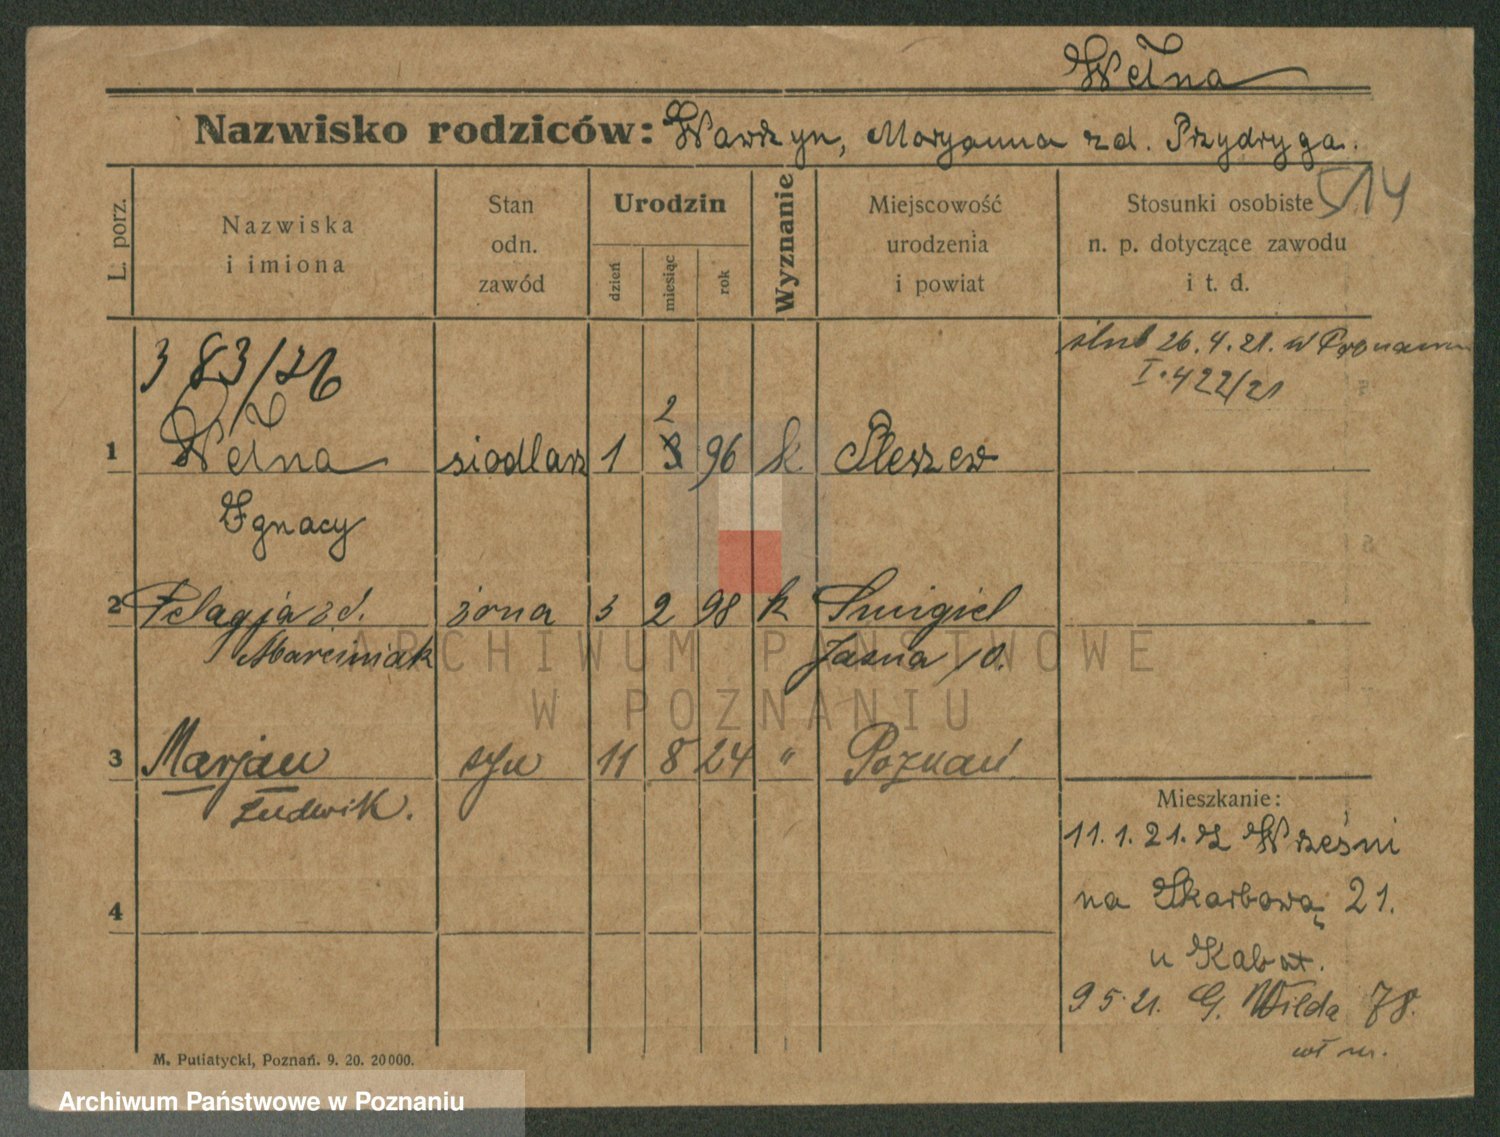 Wełna
Nazwisko rodziców: Wawrzyn, Maryanna zd. Przydryga.
514
L. porz.
Nazwiska
i imiona
Stan
odn.
zawód
Urodzin
dzień
miesiąc
rok
Wyznanie
Miejscowość
urodzenia
i powiat
Stosunki osobiste
n. p. dotyczące zawodu
i t. d.
383/26
ślub 26.4.21. w Poznaniu
I. 422/21
2
1 Wełna siodlarz 1 3 96 k. Pleszew
Ignacy
2 Pelagja zd. żona 3 2 98 k Śmigiel
Marciniak Jasna 10.
3 Marjan syn 11 8 24 " Poznań
Ludwik.
Mieszkanie:
11.1.21. z Wrześni
4
na Skarbową 21.
u Kabat.
9 5 21. G. Wilda 78.
wł m.
M. Putiatycki, Poznań. 9. 20. 20000.
ARCHIWUM PAŃSTWOWE
W POZNANIU
Archiwum Państwowe w Poznaniu